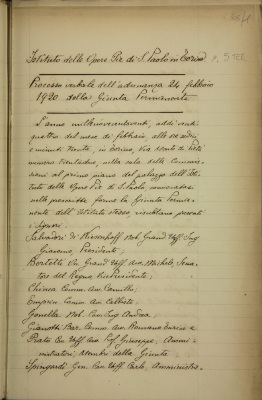 Istituto delle Opere Pie di S. Paolo in Torino
Processo verbale dell'adunanza 24 febbraio
1920 della Giunta Permanente
L'anno millenovecentoventi, addì venti
quattro del mese di febbraio, alle ore sedici
e minuti trenta, in Torino, Via Monte di Pietà
numero trentadue, nella sala delle Commis
sioni al primo piano del palazzo dell'Isti
tuto delle Opere Pie di S. Paolo convocatasi
nelle prescritte forme la Giunta Perma
nente dell'Istituto stesso risultano presenti
i Signori:
Salvadori di Wiesenhoff Nob. Grand' Uff. Ing.
Giacomo, Presidente;
Bertetti Cav. Grand' Uff. Avv. Michele, Sena
tore del Regno Vicepresidente;
Chiesa Comm. Avv. Camillo;
Emprin Comm. Avv. Callisto;
Gonella Nob. Cav. Ing. Andrea;
Gianotti Bar. Comm. Avv. Romano Enrico e
Prato Cav. Uff. Avv. Prof. Giuseppe, Ammi
nistratori, Membri della Giunta
Spingardi Gen. Cav. Uff. Carlo, Amministra-